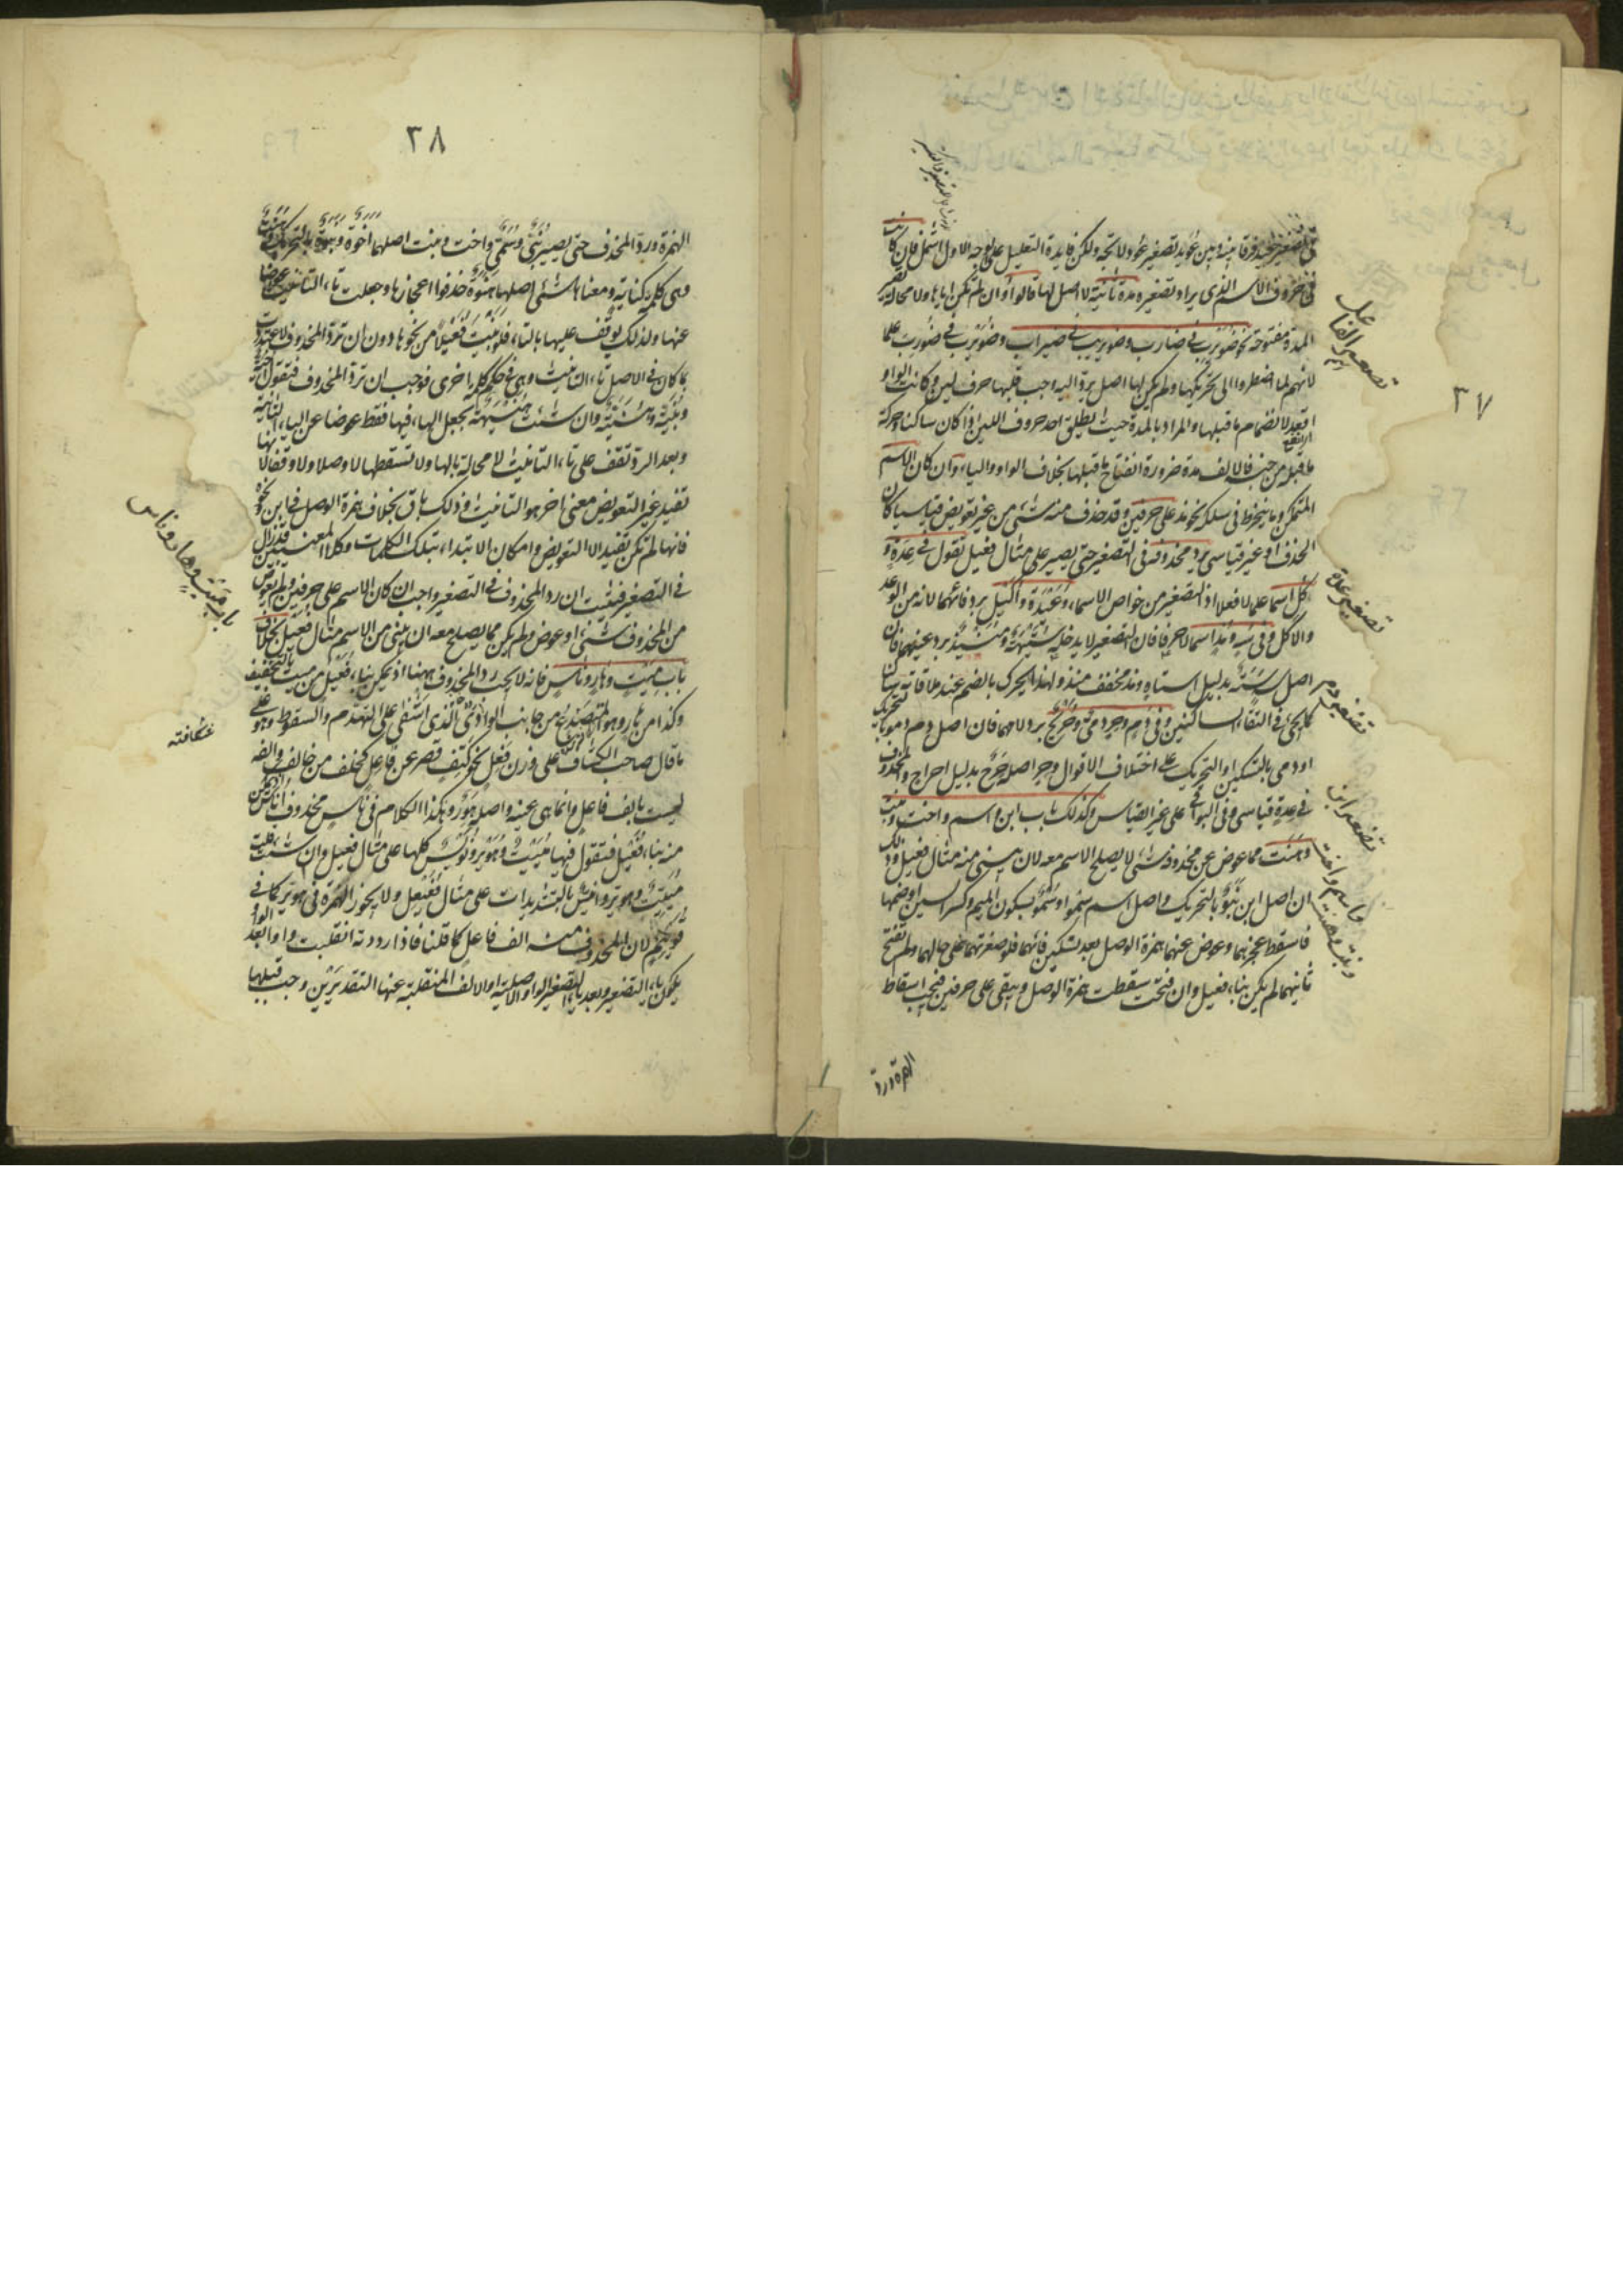 ٣٧
في تصغير عيد فرقا بينه وبين عويد تصغير عود ولا تجه ولكن فايدة التعليل على الوجه الاول اشمل فان كانت
في حروف الاسم الذي يراد تصغيره مدة ثانية لا اصل لها فالواو ان لم تكن اياها ولا محالة تصير
المدة مفتوحة نحو ضويرب في ضارب وضويريب في ضيراب وضويرب في ضورب علما
لانهم لما اضطروا الى تحريكها ولم يكن لها اصل يرد اليه وجب قلبها حرف لين وكانت الواو
اقعد لانضمام ما قبلها والمراد بالمدة حيث اطلق احد حروف اللين اذا كان ساكنا وحركة
ما قبله من جنسه فالالف مدة ضرورة انفتاح ما قبلها بخلاف الواو والياء وان كان الاسم
المتمكن وما ينخرط في سلكه نحو مذ على حرفين وقد حذف منه شيء من غير تعويض قياسيا كان
الحذف او غير قياسي يرد محذوفه في التصغير حتى يصير على مثال فعيل تقول في عدة و
كل اسما علما لا فعلا اذ التصغير من خواص الاسماء وعيدة واكيل برد فائهما لانه من الوعد
والاكل وفي سه ومذ اسما لا حرفا فان التصغير لا يدخله ستيهة ومنيذ برد عينهما فان
اصل سه سته بدليل استاه ومذ مخفف منذ ولهذا يحرك بالضم عند ملاقاته ساكنا
كما يجيء في التقاء الساكنين وفي دم وحر دمي وحريح برد لامهما فان اصل دم دمو بالتحريك
او دمي بالتسكين او التحريك على اختلاف الاقوال وحر اصله حرح بدليل احراح والمحذوف
في عدة قياسي وفي البواقي على غير القياس وكذلك باب ابن واسم واخت وبنت
وهنت مما عوض عن محذوفه شيء لا يصلح الاسم معه لان يبنى منه مثال فعيل وذلك
ان اصل ابن بنو بالتحريك واصل اسم سمو او سمو بسكون الميم وكسر السين او ضمها
فاسقط عجزهما وعوض عنهما همزة الوصل بعد تسكين فائهما فلو صغرتهما على حالهما ولم تفتح
ثانيهما لم يكن بناء فعيل وان فتحت سقطت همزة الوصل ويبقى على حرفين فيجب اسقاط
الهمزة ورد
تصغير الفاعل
تصغير عدة
تصغير دم
تصغير ابن
واسم واخت
وبنت وهنت
٣٨
الهمزة ورد المحذوف حتى يصير بني وسمي واخت وبنت اصلهما اخوة وبنوة بالتحريك وهنت
وهي كلمة كناية ومعناها شيء اصلها هنوة حذفوا اعجازها وجعلت تاء التانيث عوضا
عنها ولذلك يوقف عليها بالتاء فلو بنيت فعيلا من نحوها دون ان ترد المحذوف لاعتددت
بما كان في الاصل تاء التانيث وهي في حكم كلمة اخرى فوجب ان ترد المحذوف فتقول اخية
وبنية وهنية وان شئت هنيهة بجعل الهاء فيها فقط عوضا عن الياء الثانية
وبعد الرد تقف على تاء التانيث لا محالة بالهاء ولا تسقطها لا وصلا ولا وقفا لانها
تفيد غير التعويض معنى اخر هو التانيث وذلك باق بخلاف همزة الوصل في ابن نحوه
فانها لم تكن تفيد الا التعويض وامكان الابتداء بتلك الكلمات وكلا المعنيين قد زال
في التصغير فثبت ان رد المحذوف في التصغير واجب ان كان الاسم على حرفين ولم يعوض
من المحذوف شيء او عوض ولم يكن مما يصلح معه ان يبنى من الاسم مثال فعيل بخلاف
باب ميت وهار وناس فانه لا يجب رد المحذوف ههنا اذ يمكن بناء فعيل من ميت بالتخفيف
وكذا من هار وهو المتصدع من جانب الوادي الذي اشفى على التهدم والسقوط وهو على
ما قال صاحب الكشاف على وزن فعل نحو كتف قصر عن فاعل كخلف من خالف والفه
ليست بالف فاعل وانما هي عينه واصله هور وهكذا الكلام في ناس محذوف اناس اذ يمكن
منه بناء فعيل فتقول فيها مييت وهوير ونويس كلها على مثال فعيل وان شئت قلت
مييت وهوير وانيس بالتشديدات على مثال فعيعل ولا يجوز الهمزة في هوير كما في
قويئم لان المحذوف منه الف فاعل كما قلنا فاذا رددته انقلبت واوا لبعد الواو
يكون ياء التصغير وبعد ياء التصغير الواو الاصلية او الالف المنقلبة عنها التقديرين وجب قلبها
باب ميت وهار وناس